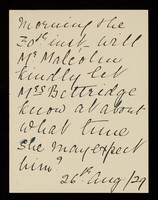 morning the
30th inst. will
Mr Malcolm
kindly let
Mrs Bettridge
know at about
what time
she may expect
him?
26th Aug/29